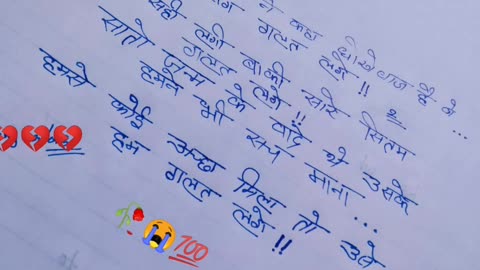 ने कहा धोखेबाज है वो ...
गलत लगे !!
सही लगी बाकी सारे सितम
गलत लगे !!
सातो जन्म के वादे थे उसके
हमने भी सच माना ...
हमसे कोई अच्छा मिला तो उसे
हम गलत लगे !!
100